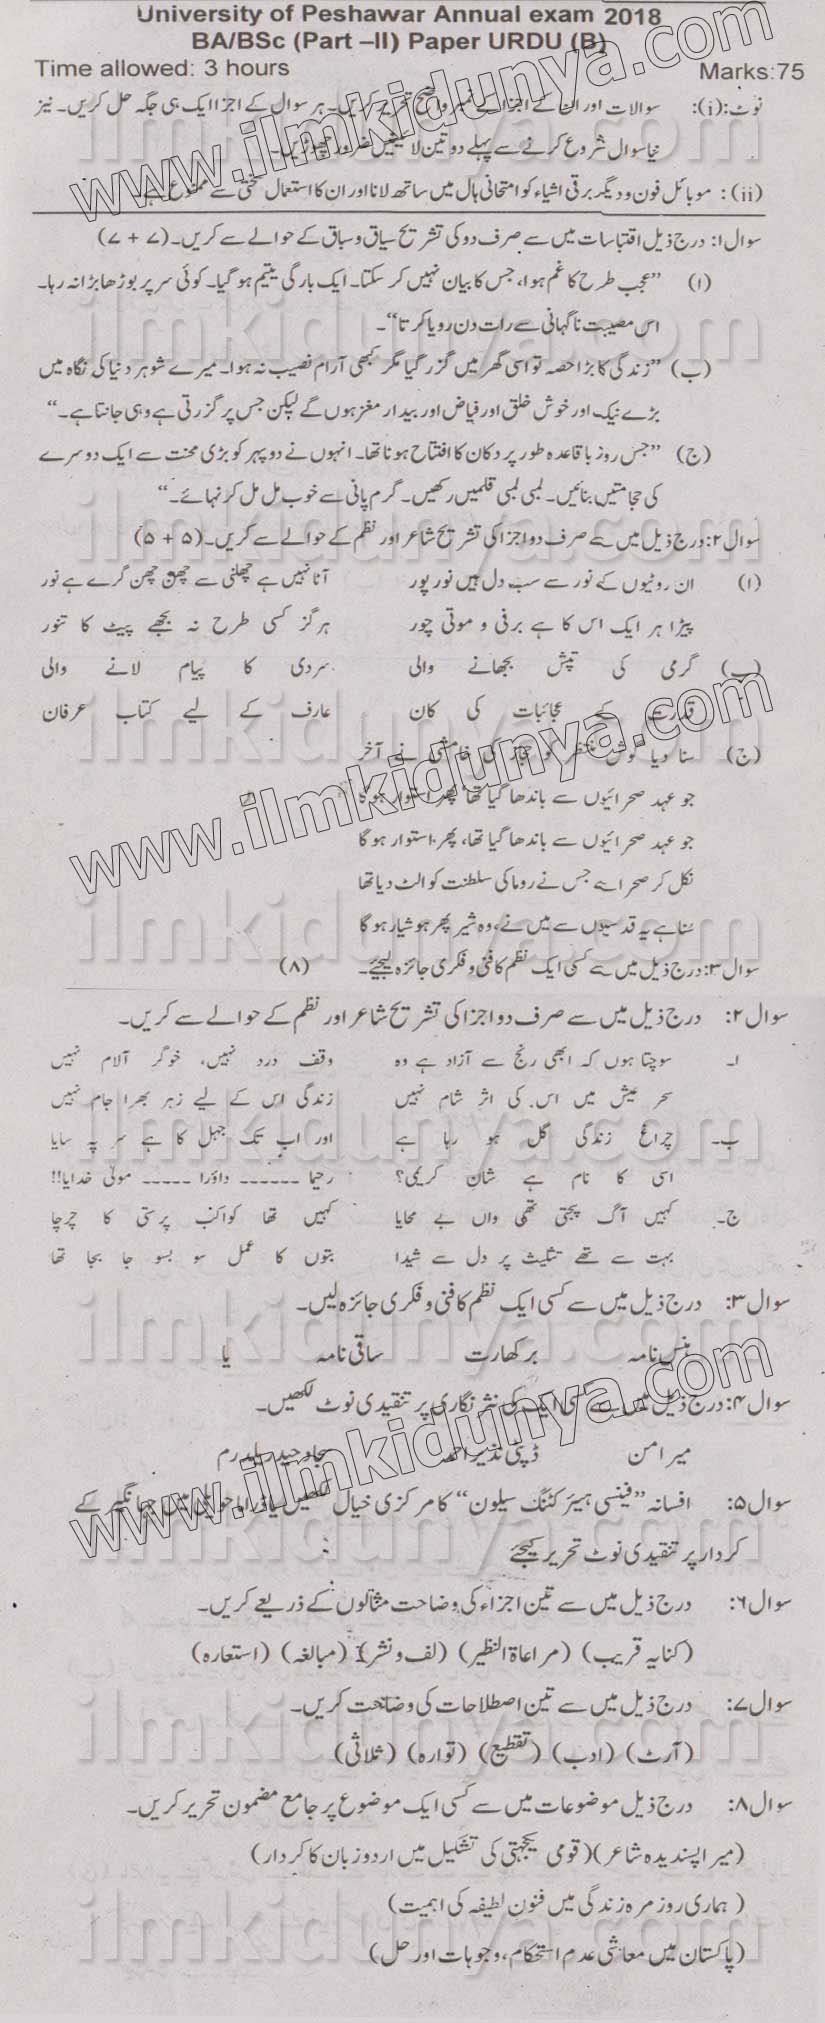 University of Peshawar Annual exam 2018
BA/BSc (Part –II) Paper URDU (B)
Time allowed: 3 hours Marks:75
نوٹ: (i): سوالات اور ان کے اجزا کے نمبر واضح تحریر کریں۔ ہر سوال کے اجزا ایک ہی جگہ حل کریں۔ نیز
نیا سوال شروع کرنے سے پہلے دو تین لائنیں ضرور چھوڑیں۔
(ii): موبائل فون و دیگر برقی اشیاء کو امتحانی ہال میں ساتھ لانا اور ان کا استعمال سختی سے ممنوع ہے۔
سوال ۱: درج ذیل اقتباسات میں سے صرف دو کی تشریح سیاق و سباق کے حوالے سے کریں۔ (۷ + ۷)
(ا) ”عجب طرح کا غم ہوا، جس کا بیان نہیں کر سکتا۔ ایک بارگی یتیم ہو گیا۔ کوئی سر پر بوڑھا بڑا نہ رہا۔
اس مصیبت ناگہانی سے رات دن رویا کرتا“۔
(ب) ”زندگی کا بڑا حصہ تو اسی گھر میں گزر گیا مگر کبھی آرام نصیب نہ ہوا۔ میرے شوہر دنیا کی نگاہ میں
بڑے نیک اور خوش خلق اور فیاض اور بیدار مغز ہوں گے لیکن جس پر گزرتی ہے وہی جانتا ہے۔“
(ج) ”جس روز باقاعدہ طور پر دکان کا افتتاح ہونا تھا۔ انہوں نے دوپہر کو بڑی محنت سے ایک دوسرے
کی حجامتیں بنائیں۔ لمبی لمبی قلمیں رکھیں۔ گرم پانی سے خوب مل مل کر نہائے۔“
سوال ۲: درج ذیل میں سے صرف دو اجزا کی تشریح شاعر اور نظم کے حوالے سے کریں۔ (۵ + ۵)
(ا) ان روٹیوں کے نور سے سب دل ہیں نور پور آٹا نہیں ہے چھلنی سے چھن چھن گرے ہے نور
پیڑا ہر ایک اس کا ہے برفی و موتی چور ہرگز کسی طرح نہ بجھے پیٹ کا تنور
(ب) گرمی کی تپش بجھانے والی سردی کا پیام لانے والی
قدرت کے عجائبات کی کان عارف کے لیے کتاب عرفان
(ج) سنا دیا گوش منتظر کو حجاز کی خامشی نے آخر
جو عہد صحرائیوں سے باندھا گیا تھا پھر استوار ہو گا
جو عہد صحرائیوں سے باندھا گیا تھا، پھر استوار ہو گا
نکل کر صحرا سے جس نے روما کی سلطنت کو الٹ دیا تھا
سُنا ہے یہ قدسیوں سے میں نے، وہ شیر پھر ہوشیار ہو گا
سوال ۳: درج ذیل میں سے کسی ایک نظم کا فنی و فکری جائزہ لیجیئے۔ (۸)
سوال ۲: درج ذیل میں سے صرف دو اجزا کی تشریح شاعر اور نظم کے حوالے سے کریں۔
ا۔ سوچتا ہوں کہ ابھی رنج سے آزاد ہے وہ وقف درد نہیں، خوگر آلام نہیں
سحر عیش میں اس کی اثر شام نہیں زندگی اس کے لیے زہر بھرا جام نہیں
ب۔ چراغ زندگی گل ہو رہا ہے اور اب تک جہل کا ہے سر پہ سایا
اسی کا نام ہے شان کریمی؟ رحیما ------ داؤرا ----- مولٰی خدایا!!
ج۔ کہیں آگ پجتی تھی واں بے محابا کہیں تھا کواکب پرستی کا چرچا
بہت سے تھے تثلیث پر دل سے شیدا بتوں کا عمل سو بسو جا بجا تھا
سوال ۳: درج ذیل میں سے کسی ایک نظم کا فنی و فکری جائزہ لیں۔
ہنس نامہ برکھارت ساقی نامہ یا
سوال ۴: درج ذیل میں سے کسی ایک کی نثر نگاری پر تنقیدی نوٹ لکھیں۔
میر امن ڈپٹی نذیر احمد سجاد حیدر یلدرم
سوال ۵: افسانہ ”فینسی ہیئر کٹنگ سیلون“ کا مرکزی خیال لکھیں یا ڈراما میں جہانگیر کے
کردار پر تنقیدی نوٹ تحریر کیجئے
سوال ۶: درج ذیل میں سے تین اجزاء کی وضاحت مثالوں کے ذریعے کریں۔
(کنایہ قریب) (مراعاۃ النظیر) (لف و نشر) (مبالغہ) (استعارہ)
سوال ۷: درج ذیل میں سے تین اصطلاحات کی وضاحت کریں۔
(آرٹ) (ادب) (تقطیع) (توارہ) (ثلاثی)
سوال ۸: درج ذیل موضوعات میں سے کسی ایک موضوع پر جامع مضمون تحریر کریں۔
(میرا پسندیدہ شاعر) (قومی یکجہتی کی تشکیل میں اردو زبان کا کردار)
(ہماری روزمرہ زندگی میں فنون لطیفہ کی اہمیت)
(پاکستان میں معاشی عدم استحکام، وجوہات اور حل)
www.ilmkidunya.com
www.ilmkidunya.com
www.ilmkidunya.com